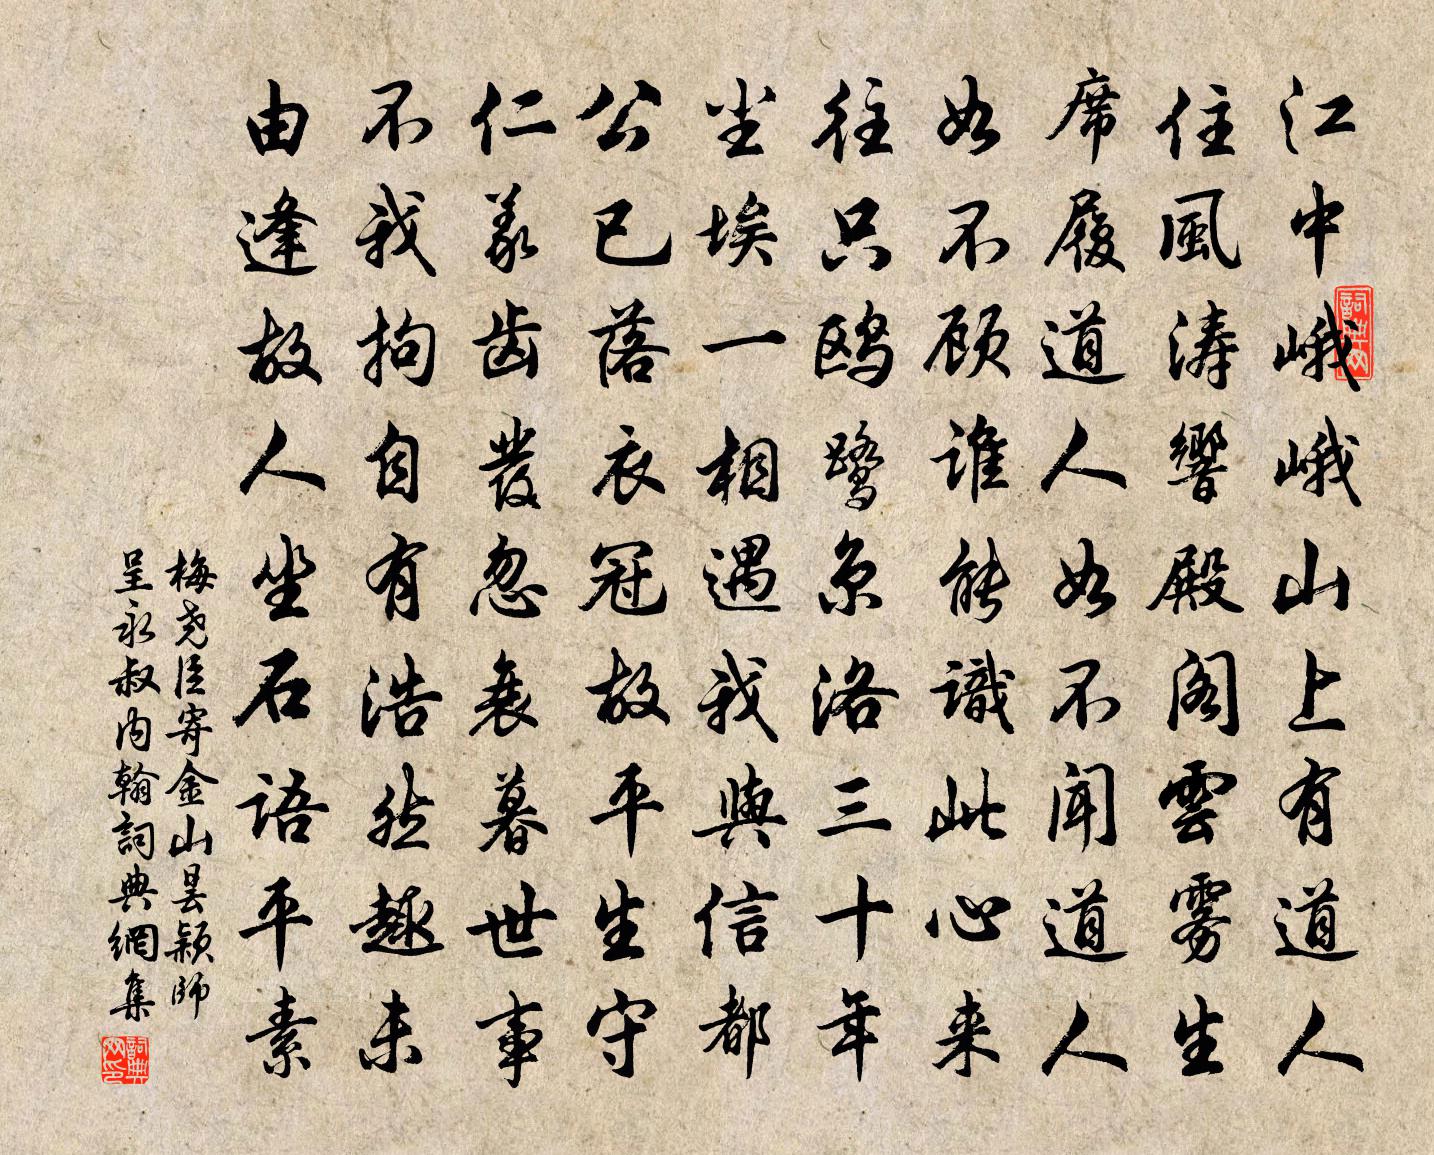 江中峨峨山上有道人
住風濤響殿閣雲雾生
席履道人如不聞道人
如不顾誰能識此心来
往只鸥鹭京洛三十年
尘埃一相遇我與信都
公已落衣冠故平生守
仁義齿發忽衰暮世事
不我拘自有浩然趣未
由逢故人坐石語平素
梅尧臣寄金山昙颖師
呈永叔内翰詞典網集
詞典网
詞典网印